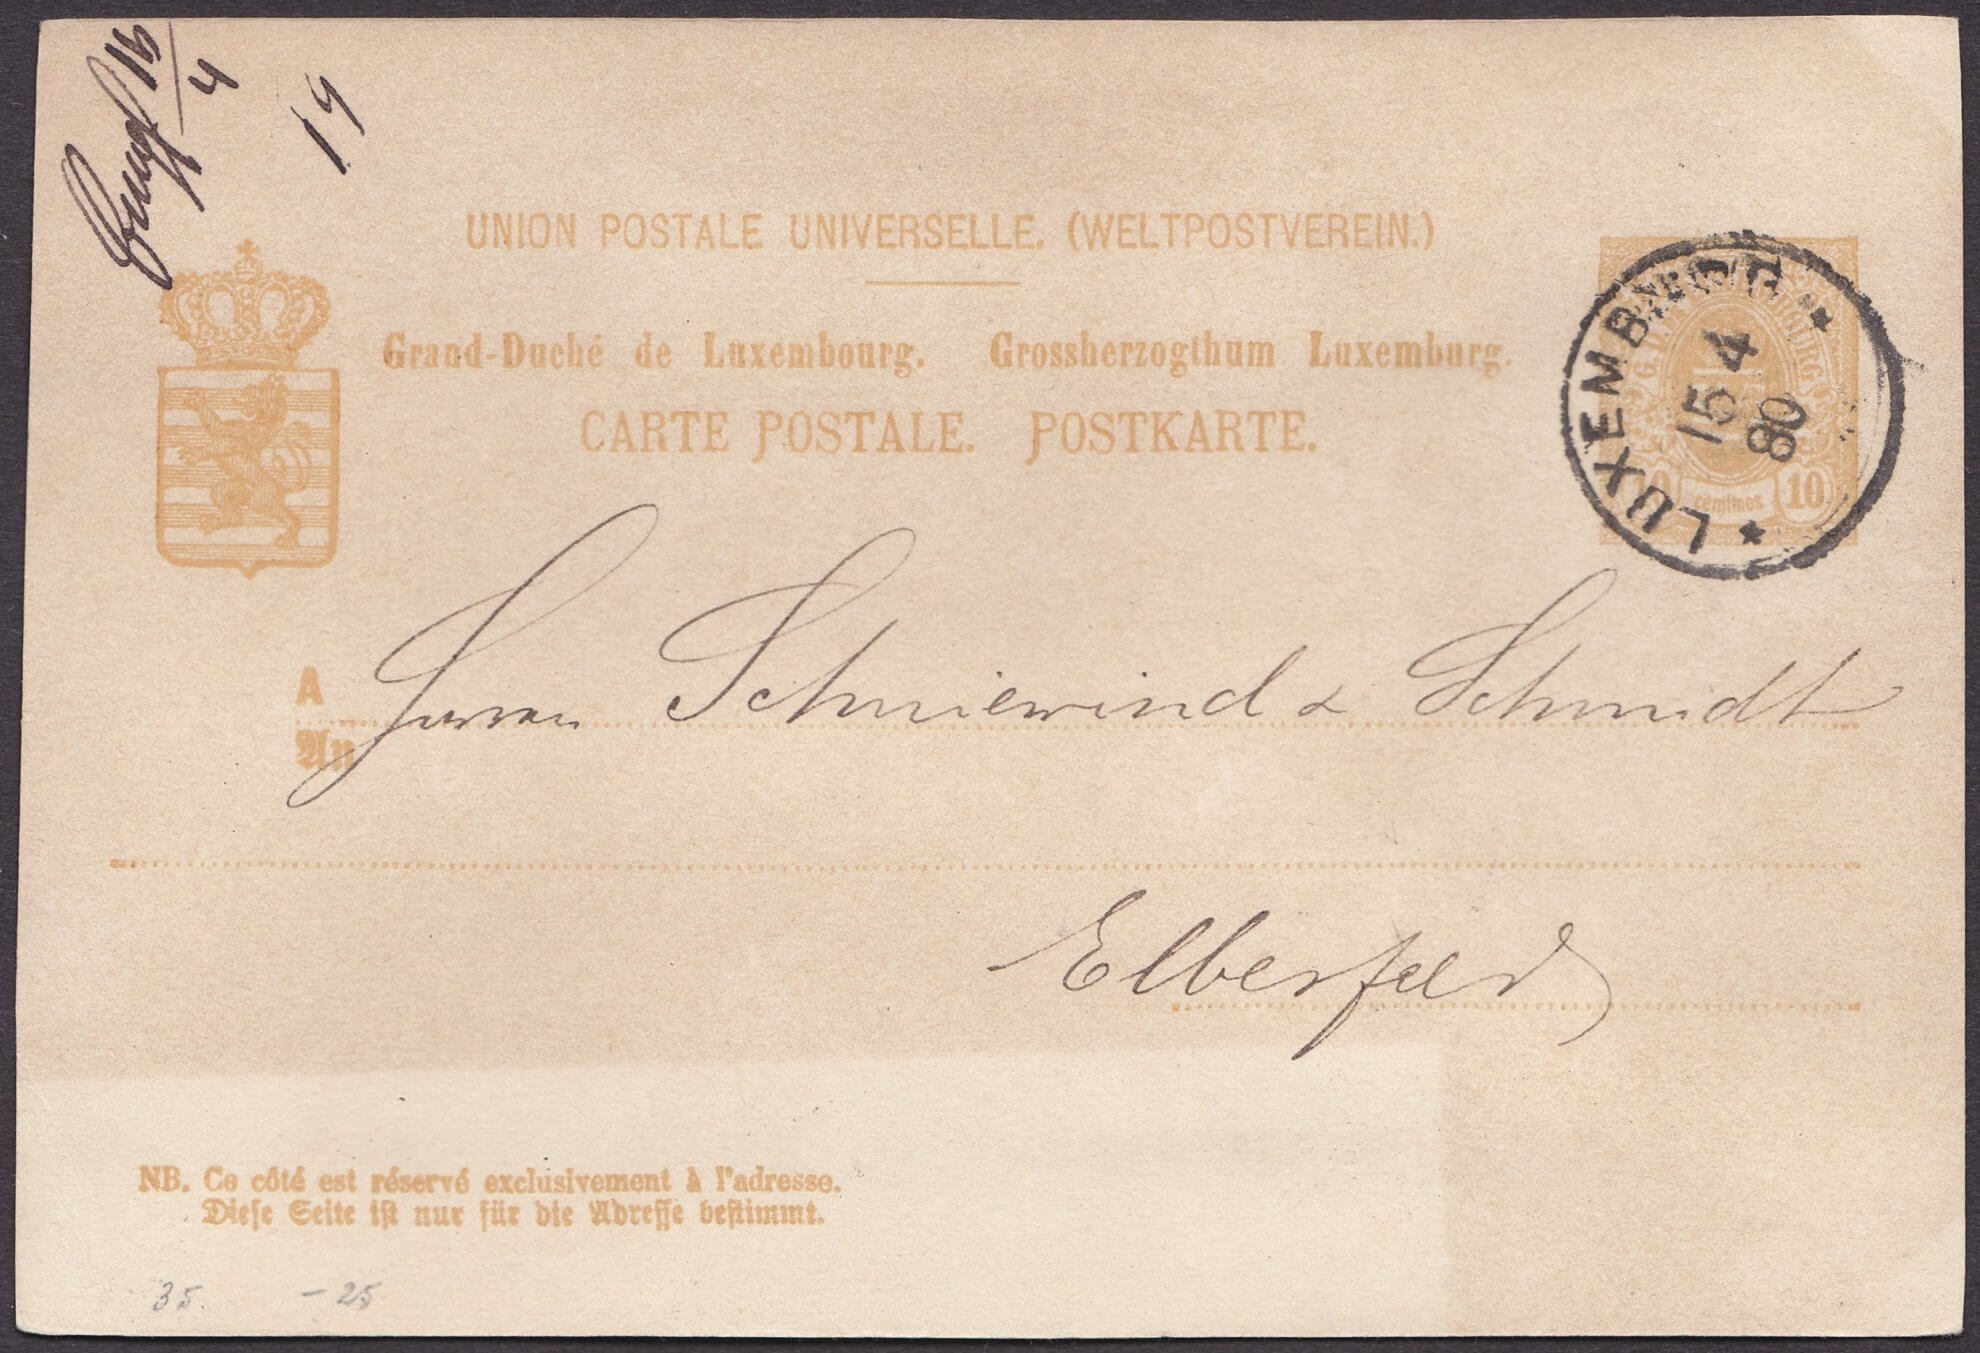 16/4
19
UNION POSTALE UNIVERSELLE. (WELTPOSTVEREIN.)
Grand-Duché de Luxembourg. Grossherzogthum Luxemburg.
CARTE POSTALE. POSTKARTE.
LUXEMBURG
15 4
80
10 centimes 10
A
An
Herren Schniewind & Schmidt
Elberfeld
NB. Ce côté est réservé exclusivement à l'adresse.
Diese Seite ist nur für die Adresse bestimmt.
35. -25